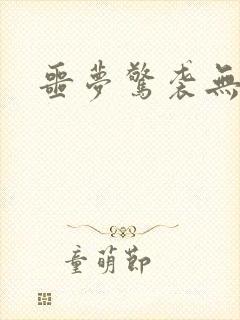 噩夢驚袭無
童萌節